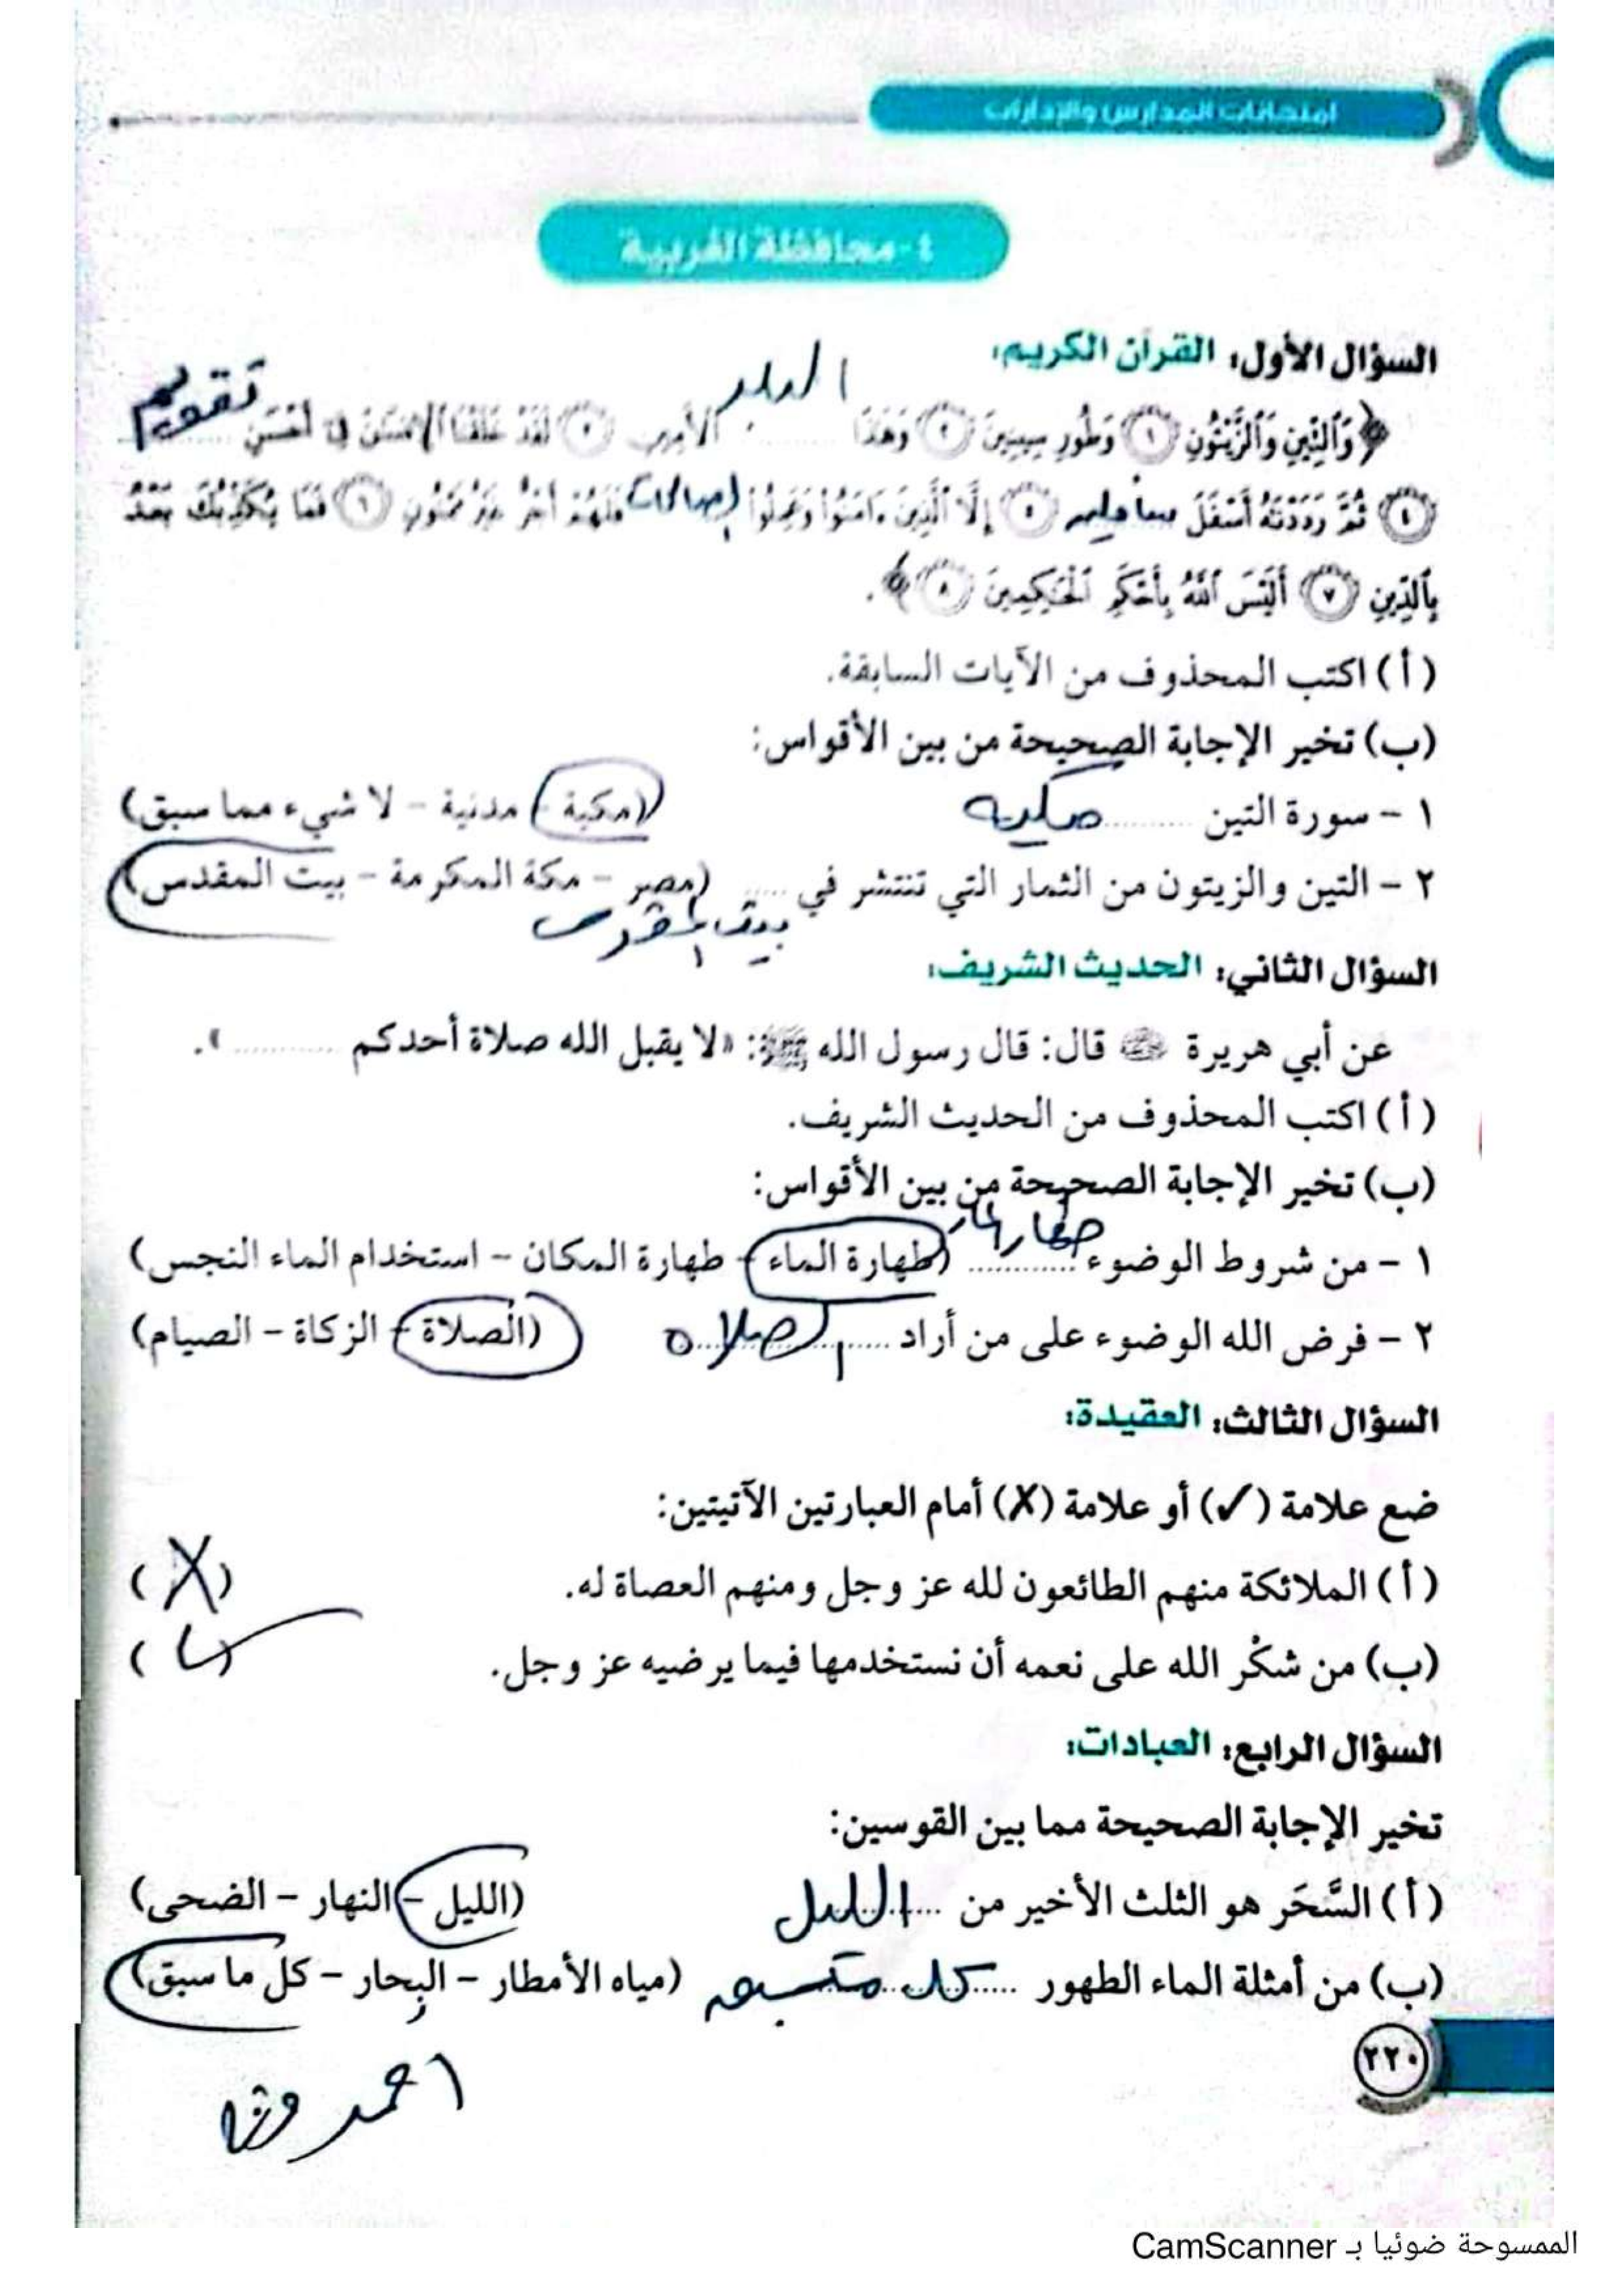 امتحانات المدارس والإدارات
٤- محافظة الغربية
السؤال الأول: القرآن الكريم:
﴿ وَالتِّينِ وَالزَّيْتُونِ ١ وَطُورِ سِينِينَ ٢ وَهَٰذَا البلد الْأَمِينِ ٣ لَقَدْ خَلَقْنَا الْإِنسَانَ فِي أَحْسَنِ تقويم
٤ ثُمَّ رَدَدْنَاهُ أَسْفَلَ سافلين ٥ إِلَّا الَّذِينَ ءَامَنُوا وَعَمِلُوا الصالحات فَلَهُمْ أَجْرٌ غَيْرُ مَمْنُونٍ ٦ فَمَا يُكَذِّبُكَ بَعْدُ
بِالدِّينِ ٧ أَلَيْسَ اللَّهُ بِأَحْكَمِ الْحَاكِمِينَ ٨ ﴾.
(أ) اكتب المحذوف من الآيات السابقة.
(ب) تخير الإجابة الصحيحة من بين الأقواس:
١ - سورة التين .......... مكية (مكية - مدنية - لا شيء مما سبق)
٢ - التين والزيتون من الثمار التي تنتشر في ..... (مصر - مكة المكرمة - بيت المقدس)
بيت المقدس
السؤال الثاني: الحديث الشريف:
عن أبي هريرة رضي الله عنه قال: قال رسول الله ﷺ: «لا يقبل الله صلاة أحدكم ..........».
(أ) اكتب المحذوف من الحديث الشريف.
(ب) تخير الإجابة الصحيحة من بين الأقواس:
١ - من شروط الوضوء .......... (طهارة الماء - طهارة المكان - استخدام الماء النجس)
٢ - فرض الله الوضوء على من أراد .......... الصلاه (الصلاة - الزكاة - الصيام)
السؤال الثالث: العقيدة:
ضع علامة (✓) أو علامة (✗) أمام العبارتين الآتيتين:
(أ) الملائكة منهم الطائعون لله عز وجل ومنهم العصاة له. (✗)
(ب) من شكْر الله على نعمه أن نستخدمها فيما يرضيه عز وجل. (✓)
السؤال الرابع: العبادات:
تخير الإجابة الصحيحة مما بين القوسين:
(أ) السَّحَر هو الثلث الأخير من .......... الليل (الليل - النهار - الضحى)
(ب) من أمثلة الماء الطهور .......... (مياه الأمطار - البحار - كل ما سبق)
٢٢٠
احمد
الممسوحة ضوئيا بـ CamScanner